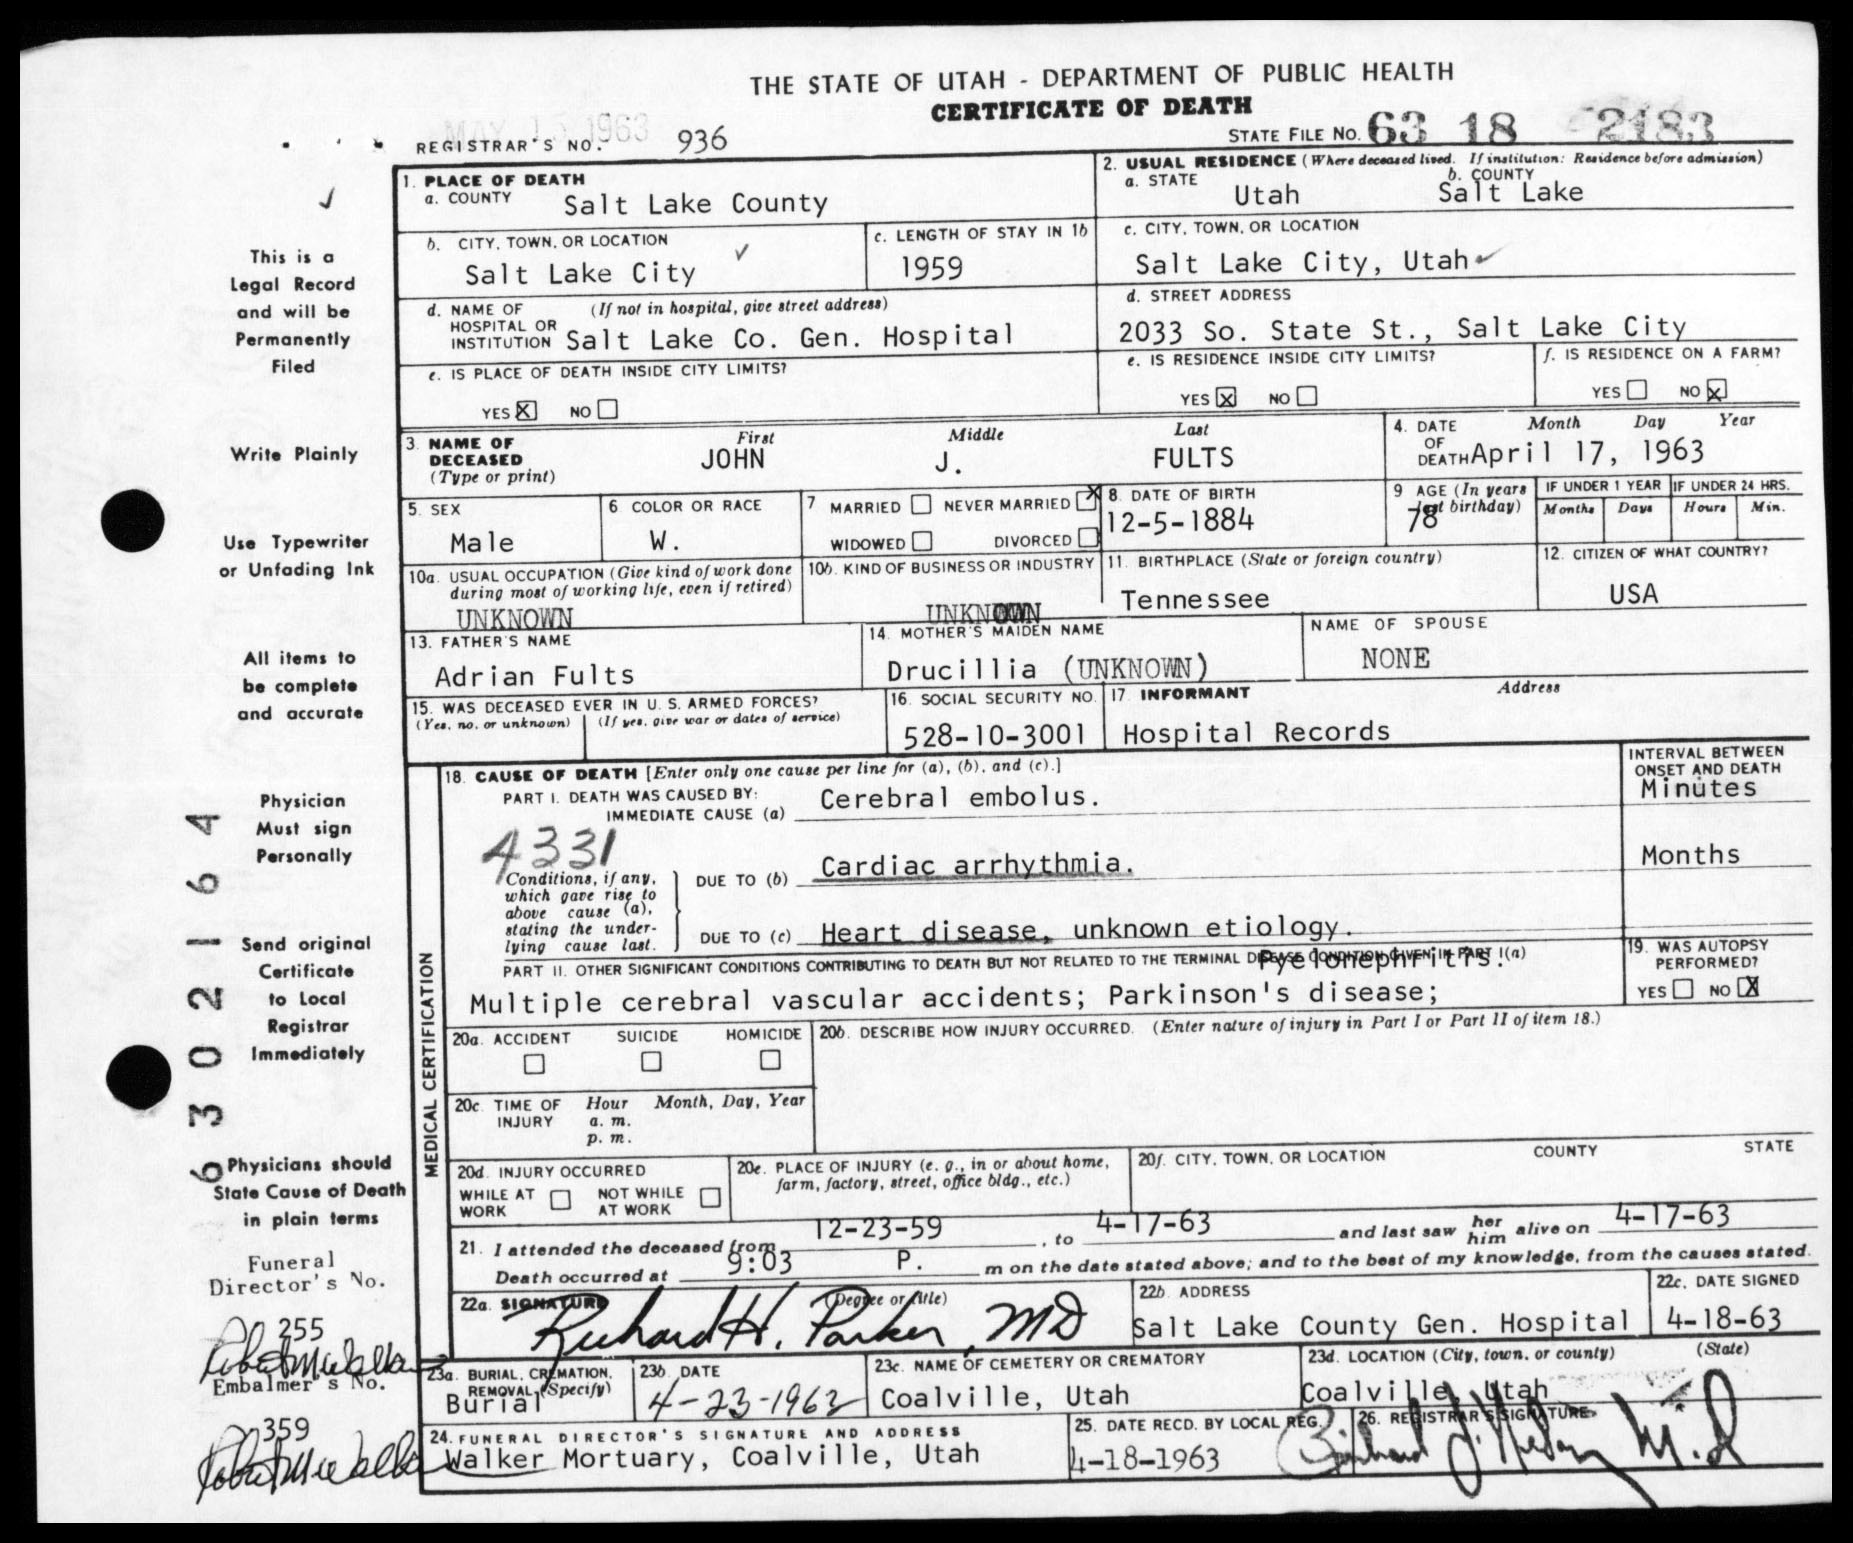 THE STATE OF UTAH - DEPARTMENT OF PUBLIC HEALTH
CERTIFICATE OF DEATH
MAY 15 1963
REGISTRAR'S NO. 936
STATE FILE NO. 63 18 2183
1. PLACE OF DEATH
a. COUNTY Salt Lake County
2. USUAL RESIDENCE (Where deceased lived. If institution: Residence before admission)
a. STATE Utah b. COUNTY Salt Lake
b. CITY, TOWN, OR LOCATION Salt Lake City
c. LENGTH OF STAY IN 1b 1959
c. CITY, TOWN, OR LOCATION
Salt Lake City, Utah
d. NAME OF HOSPITAL OR INSTITUTION (If not in hospital, give street address)
Salt Lake Co. Gen. Hospital
d. STREET ADDRESS
2033 So. State St., Salt Lake City
e. IS PLACE OF DEATH INSIDE CITY LIMITS?
YES X NO
e. IS RESIDENCE INSIDE CITY LIMITS?
YES X NO
f. IS RESIDENCE ON A FARM?
YES NO X
3. NAME OF DECEASED (Type or print)
First Middle Last
JOHN J. FULTS
4. DATE OF DEATH Month Day Year
April 17, 1963
5. SEX
Male
6 COLOR OR RACE
W.
7 MARRIED NEVER MARRIED X
WIDOWED DIVORCED
8. DATE OF BIRTH
12-5-1884
9 AGE (In years last birthday)
78
IF UNDER 1 YEAR
Months Days
IF UNDER 24 HRS.
Hours Min.
10a. USUAL OCCUPATION (Give kind of work done during most of working life, even if retired)
UNKNOWN
10b. KIND OF BUSINESS OR INDUSTRY
UNKNOWN
11. BIRTHPLACE (State or foreign country)
Tennessee
12. CITIZEN OF WHAT COUNTRY?
USA
13. FATHER'S NAME
Adrian Fults
14. MOTHER'S MAIDEN NAME
Drucillia (UNKNOWN)
NAME OF SPOUSE
NONE
15. WAS DECEASED EVER IN U. S. ARMED FORCES?
(Yes, no, or unknown) (If yes, give war or dates of service)
16. SOCIAL SECURITY NO.
528-10-3001
17. INFORMANT Address
Hospital Records
MEDICAL CERTIFICATION
18. CAUSE OF DEATH [Enter only one cause per line for (a), (b), and (c).]
INTERVAL BETWEEN ONSET AND DEATH
PART I. DEATH WAS CAUSED BY:
IMMEDIATE CAUSE (a) Cerebral embolus. Minutes
4331
Conditions, if any, which gave rise to above cause (a), stating the underlying cause last.
DUE TO (b) Cardiac arrhythmia. Months
DUE TO (c) Heart disease, unknown etiology.
PART II. OTHER SIGNIFICANT CONDITIONS CONTRIBUTING TO DEATH BUT NOT RELATED TO THE TERMINAL DISEASE CONDITION GIVEN IN PART I(a)
Pyelonephritis.
Multiple cerebral vascular accidents; Parkinson's disease;
19. WAS AUTOPSY PERFORMED?
YES NO X
20a. ACCIDENT SUICIDE HOMICIDE
20b. DESCRIBE HOW INJURY OCCURRED. (Enter nature of injury in Part I or Part II of item 18.)
20c. TIME OF INJURY Hour Month, Day, Year
a. m.
p. m.
20d. INJURY OCCURRED
WHILE AT WORK NOT WHILE AT WORK
20e. PLACE OF INJURY (e. g., in or about home, farm, factory, street, office bldg., etc.)
20f. CITY, TOWN, OR LOCATION COUNTY STATE
21. I attended the deceased from 12-23-59, to 4-17-63 and last saw her him alive on 4-17-63
Death occurred at 9:03 P. m on the date stated above; and to the best of my knowledge, from the causes stated.
22a. SIGNATURE (Degree or title)
Richard H. Parker, MD
22b. ADDRESS
Salt Lake County Gen. Hospital
22c. DATE SIGNED
4-18-63
23a. BURIAL, CREMATION, REMOVAL (Specify)
Burial
23b. DATE
4-23-1963
23c. NAME OF CEMETERY OR CREMATORY
Coalville, Utah
23d. LOCATION (City, town, or county) (State)
Coalville, Utah
24. FUNERAL DIRECTOR'S SIGNATURE AND ADDRESS
Walker Mortuary, Coalville, Utah
25. DATE RECD. BY LOCAL REG.
4-18-1963
26. REGISTRAR'S SIGNATURE
M.D
This is a
Legal Record
and will be
Permanently
Filed
Write Plainly
Use Typewriter
or Unfading Ink
All items to
be complete
and accurate
Physician
Must sign
Personally
Send original
Certificate
to Local
Registrar
Immediately
Physicians should
State Cause of Death
in plain terms
6302164
Funeral
Director's No.
255
Embalmer's No.
359